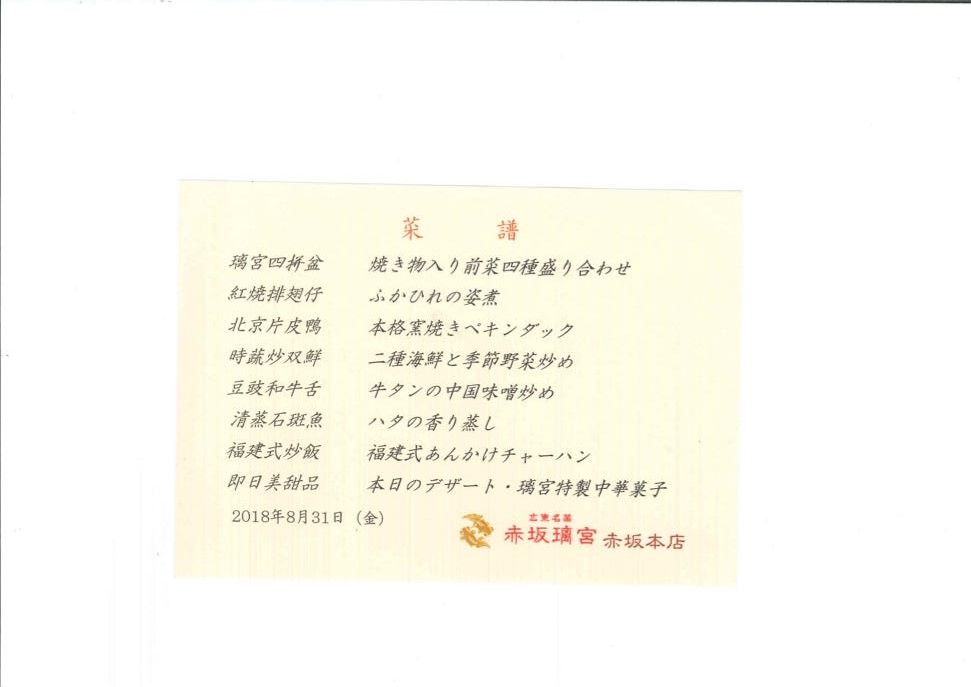 菜 譜
璃宮四拼盆 焼き物入り前菜四種盛り合わせ
紅焼排翅仔 ふかひれの姿煮
北京片皮鴨 本格窯焼きペキンダック
時蔬炒双鮮 二種海鮮と季節野菜炒め
豆豉和牛舌 牛タンの中国味噌炒め
清蒸石斑魚 ハタの香り蒸し
福建式炒飯 福建式あんかけチャーハン
即日美甜品 本日のデザート・璃宮特製中華菓子
2018年8月31日（金）
広東名菜
赤坂璃宮 赤坂本店